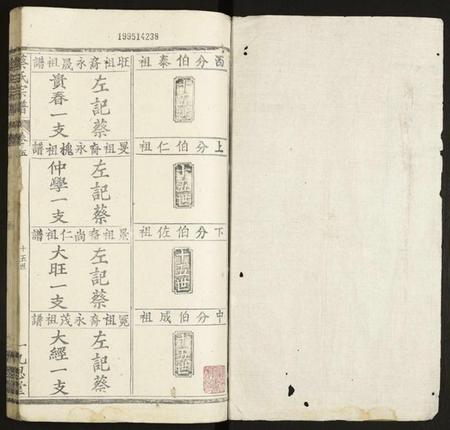 199514238
酉分伯泰祖
十五世
上分伯仁祖
十五世
下分伯佐祖
十五世
中分伯成祖
十五世
旺祖裔永晟祖譜
左記蔡
貴春一支
旻祖裔永槐祖譜
左記蔡
仲學一支
景祖裔尚仁祖譜
左記蔡
大旺一支
冕祖裔永茂祖譜
左記蔡
大經一支
蔡氏宗譜
卷五
十五世
九思堂